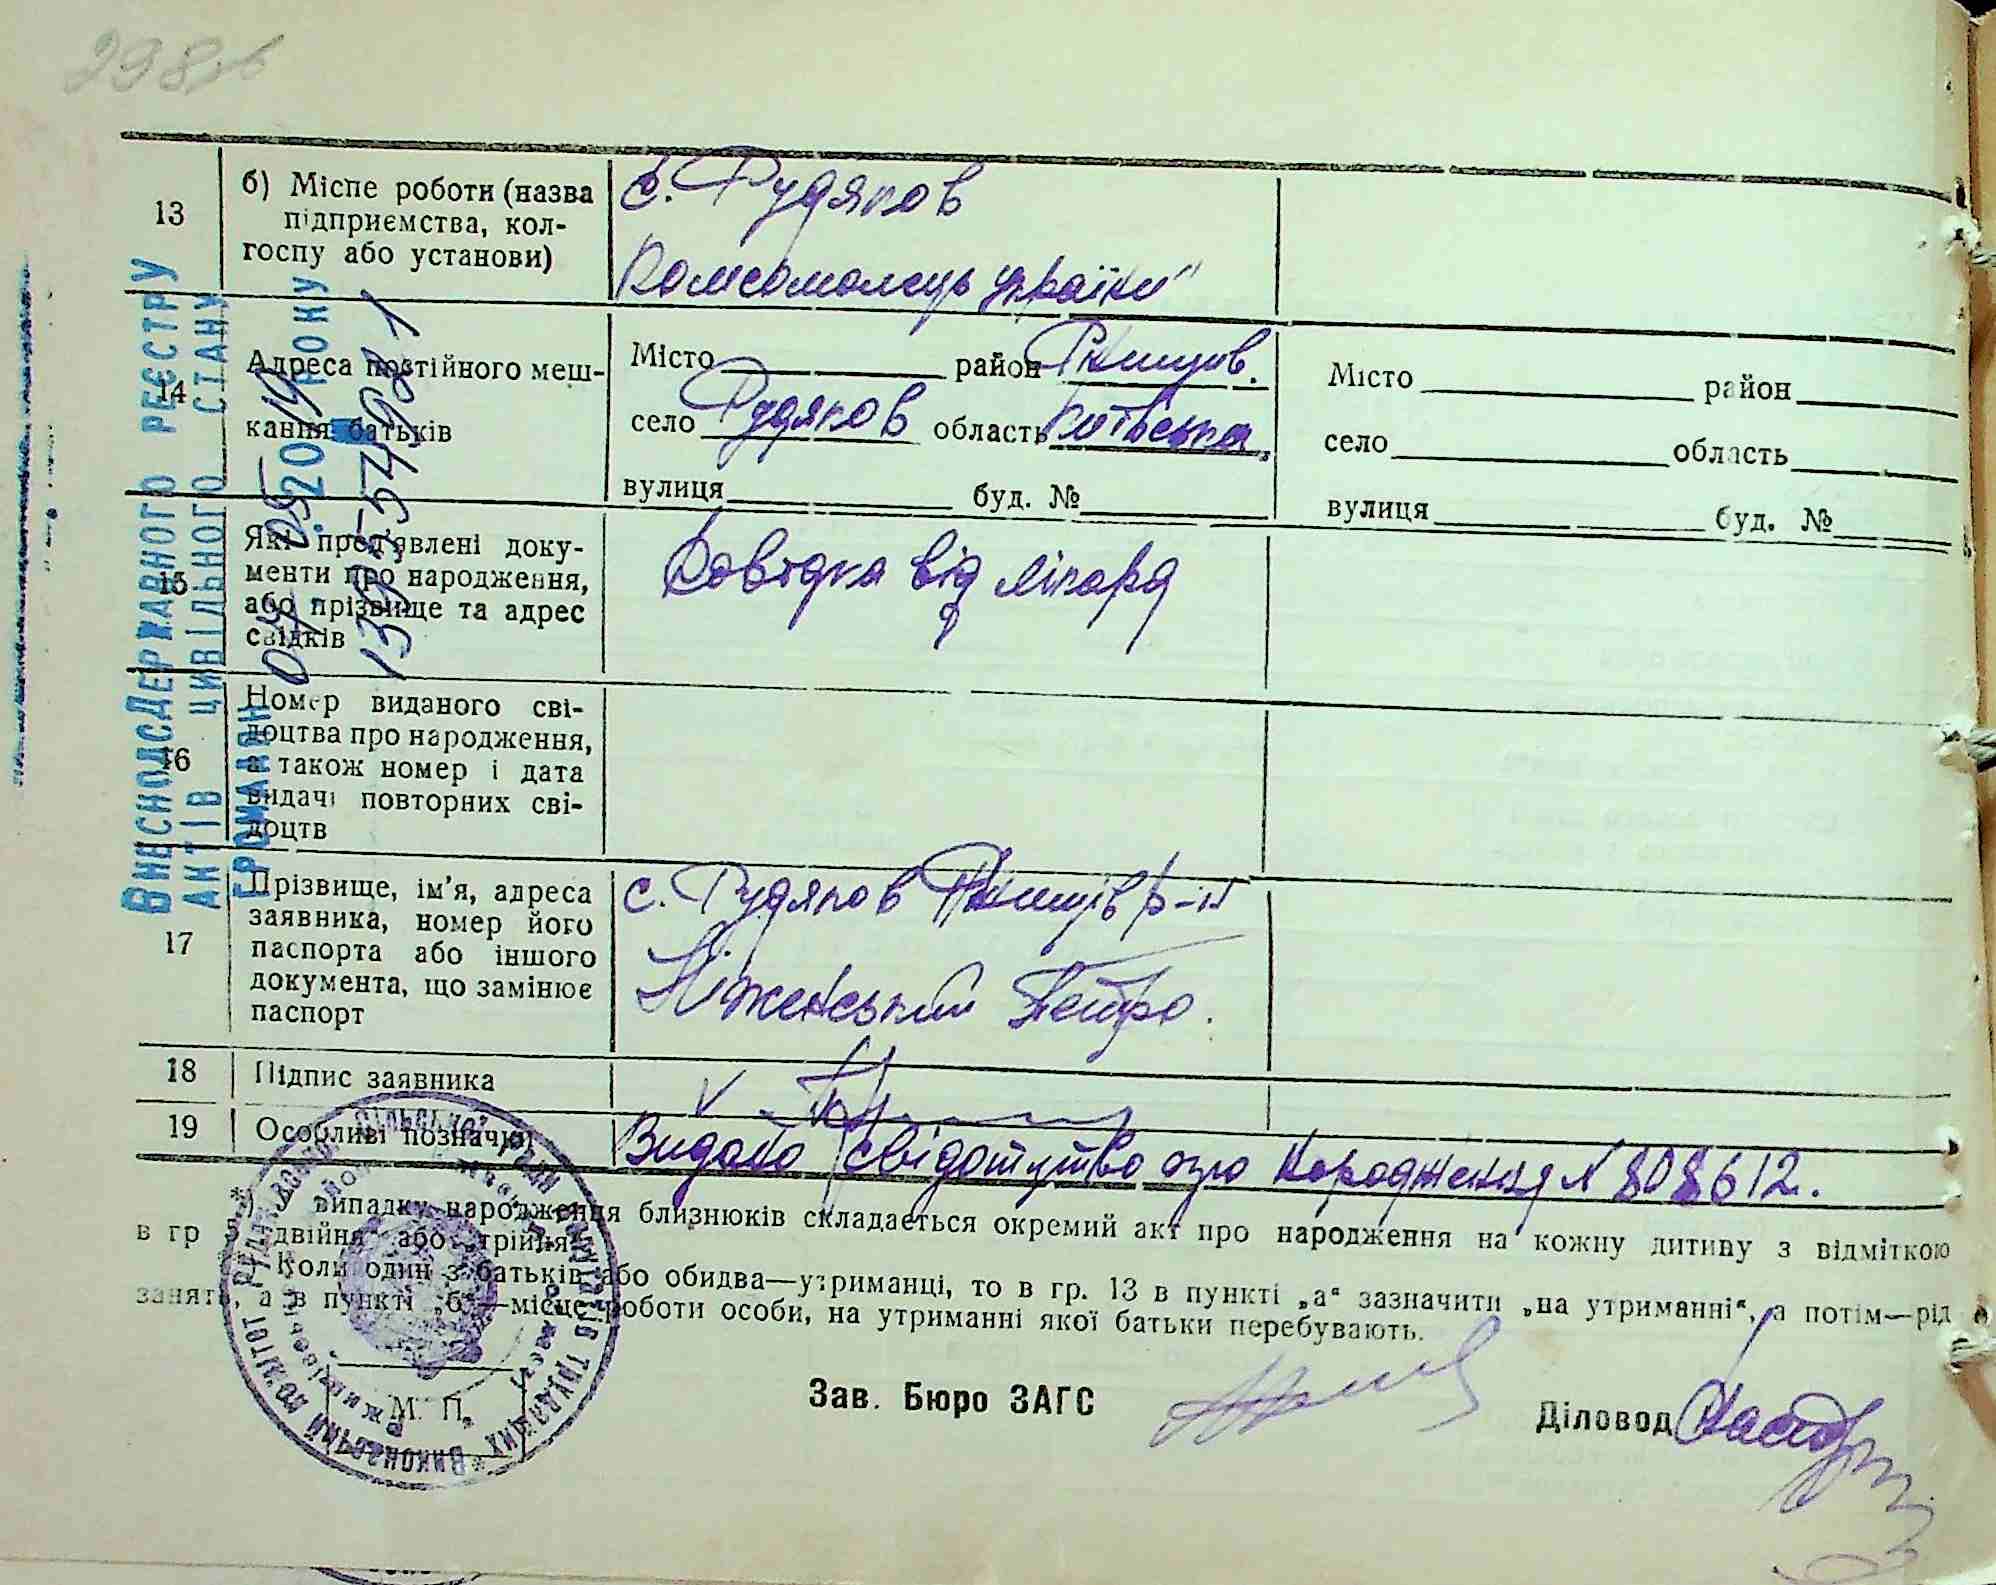 298зв
13
б) Місце роботи (назва
підприємства, кол-
госпу або установи)
с. Рудяков
Комсомолець україни"
14
Адреса постійного меш-
кання батьків
Місто район Ржищів.
село Рудяков область Київська,
вулиця буд. №
Місто район
село область
вулиця буд. №
15
Які пред'явлені доку-
менти про народження,
або прізвище та адрес
свідків
Довідка від лікаря
16
Номер виданого сві-
доцтва про народження,
а також номер і дата
видачі повторних сві-
доцтв
17
Прізвище, ім'я, адреса
заявника, номер його
паспорта або іншого
документа, що замінює
паспорт
с. Рудяков Ржищів р-н
Ніженський Петро.
18
Підпис заявника
19
Особливі позначки
Видано свідотство про народження N 808612.
*) У випадку народження близнюків складається окремий акт про народження на кожну дитину з відміткою
в гр 5 „двійня" або „трійня".
Коли один з батьків або обидва—утриманці, то в гр. 13 в пункті „а" зазначити „на утриманні", а потім—рід
занять, а в пункті „б"—місце роботи особи, на утриманні якої батьки перебувають.
М. П.
Зав. Бюро ЗАГС
Діловод
ВНЕСЕНО ДО ДЕРЖАВНОГО РЕЄСТРУ
АКТІВ ЦИВІЛЬНОГО СТАНУ
ГРОМАДЯН 04.05.2019 РОКУ